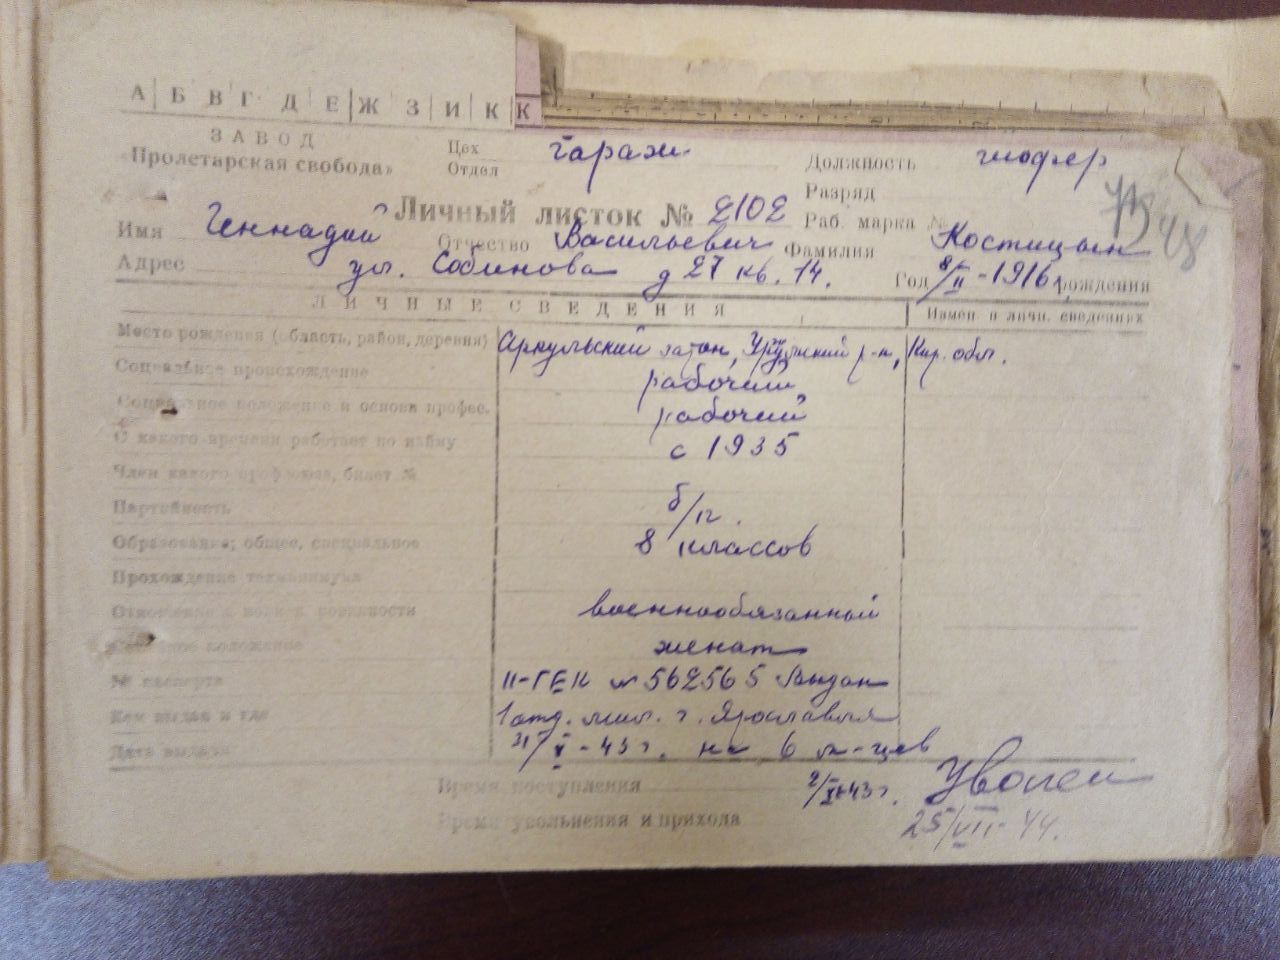 А Б В Г Д Е Ж З И К К
ЗАВОД
«Пролетарская свобода»
Цех
Отдел гараж
Должность шофер
Разряд
Личный листок № 2102
Раб. марка №
Имя Геннадий Отчество Васильевич Фамилия Костицын
Адрес ул. Собинова д 27 кв. 14. Год 8/II-1916 рождения
ЛИЧНЫЕ СВЕДЕНИЯ Измен. в личн. сведениях
Место рождения (область, район, деревня) Аркульский затон, р-н, Кир. обл.
Социальное происхождение рабочий
Социальное положение и основн профес. рабочий
С какого времени работает по найму с 1935
Член какого профсоюза, билет №
Партийность б/п.
Образование; общее, специальное 8 классов
Прохождение техминимума
Отношение к воин к повинности военнообязанный
Семейное положение женат
№ паспорта II-ГЕК № 562565 Выдан
Кем выдан и где 1 отд. мил. г. Ярославля
Дата выдачи V-43 г. на 6 м-цев
Время поступления 43 г. Уволен
Время увольнения и прихода 25/VII-44.